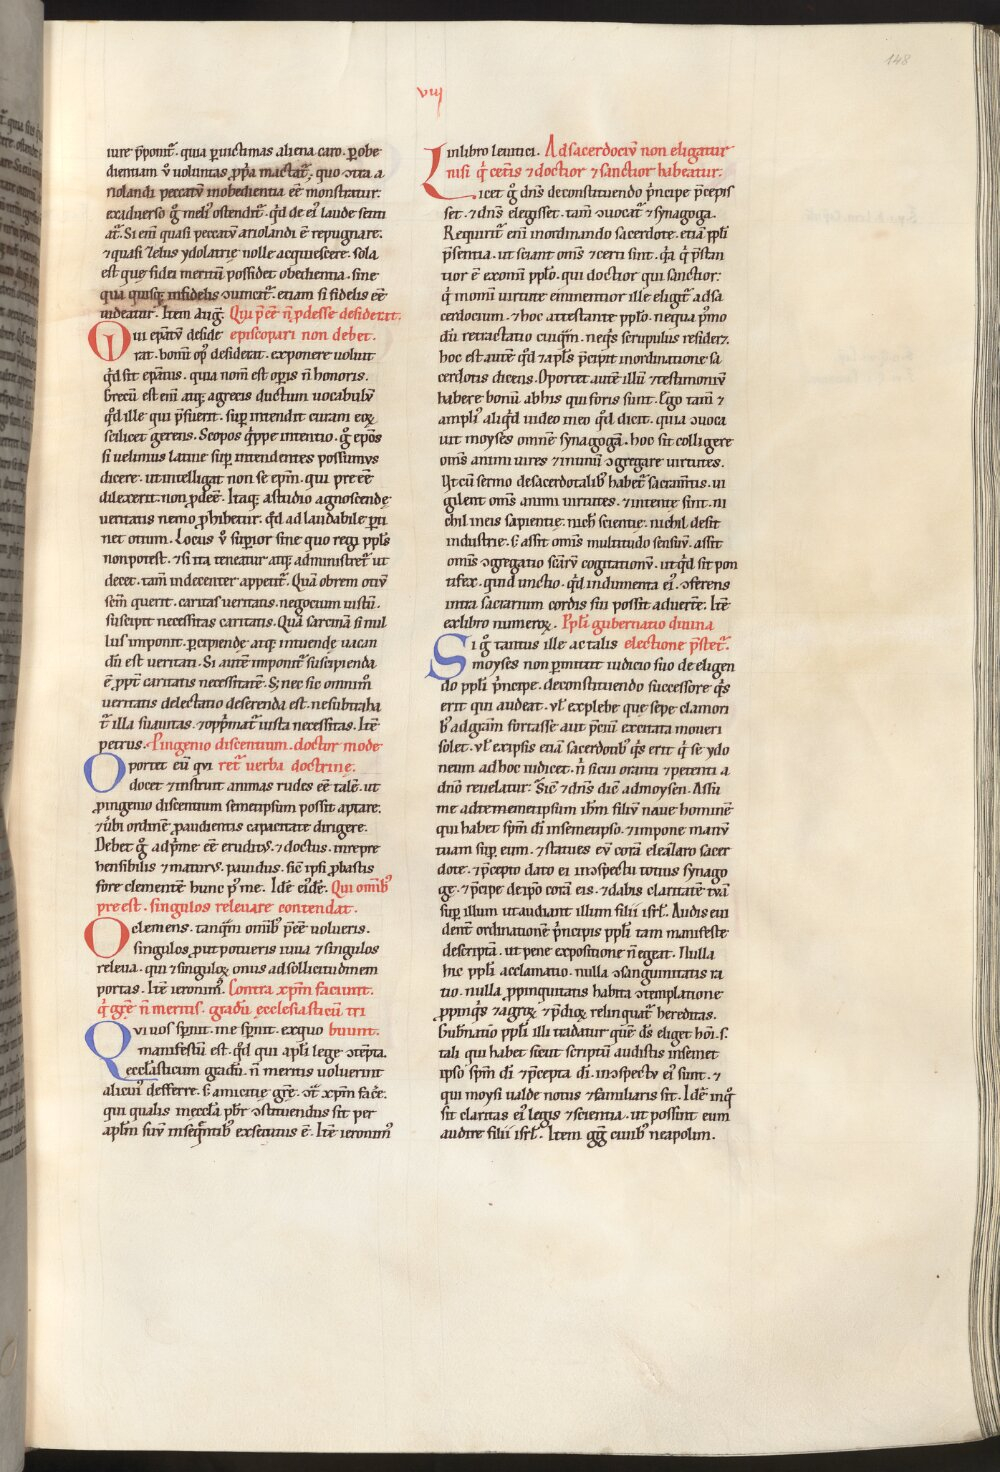 148
viij
iure p̄ponit᷑. quia ꝑ uictimas aliena caro. ꝑ obe
dientiam ỽ uoluntas ꝓpa mactat᷑; quo ↄtra a
riolandi peccatū inobedientia eē monstratur.
ex aduerso g̊ meliꝰ ostendit᷑. qd̄ de eiꝰ laude senti
at᷑. Si enī quasi peccatū ariolandi ē repugnare.
⁊ quasi scelus ydolatrię nolle acquiescere. sola
est que fidei meritū possidet obedientia. sine
qua quisq; infidelis ↄuincit᷑. etiam si fidelis eē
uideatur. Item aug̅. Qui p̄eē ñ ꝓdesse desiderat.
Qui ep̄atū deside episcopari non debet.
rat. bonū opꝰ desiderat. exponere uoluit
qd̄ sit ep̄atus. quia nom̄ est opis ñ honoris.
Grecū est enī atq; a greco ductum uocabulū
qd̄ ille qui p̄fuerit. suꝑ intendit curam eoꝝ
scilicet gerens. Scopos q̊ppe intentio. g̊ ep̄os
si uelimus latine suꝑ intendentes possumus
dicere. ut intelligat non se ep̄m. qui preeē
dilexerit. non ꝓdeē. Itaq; a studio agnoscendę
ueritatis nemo ꝓhibetur. qd̄ ad laudabile ꝑti
net otium. Locus ỽ suꝑior sine quo regi ppl̄s
non potest. ⁊ si ita teneatur atq; administret᷑ ut
decet. tam̄ indecenter appetit᷑. Quā obrem otiū
sc̄m querit. caritas ueritatis. negocium iustū.
suscipit necessitas caritatis. Quā sarcinā si nul
lus imponit. ꝑcipiendę atq; intuendę uacan
dū est ueritati. Si autē imponit᷑ suscipienda
ē ꝓpt̄ caritatis necessitatē. S; nec sic omnim̊
ueritatis delectatio deserenda est. ne subtraha
t᷑ illa suauitas. ⁊ opp̄mat᷑ iusta necessitas. Itē
petrus. P̱ ingenio discentium. doctor mode
Oportet eū qui ret᷑ uerba doctrinę.
docet ⁊ instruit animas rudes eē talē. ut
ꝓ ingenio discentium semetipsum possit aptare.
⁊ ūbi ordinē ꝓ audientis capacitate dirigere.
Debet g̊ adp̄me eē eruditꝰ. ⁊ doctus. inrepre
hensibilis ⁊ maturꝰ. pauidus. sic̄ ipsi ꝓbastis
fore clementē hunc p̄ me. Idē eidē. Qui omibꝰ
preest. singulos releuare contendat.
O clemens. tanq̄m omibꝰ p̄eē uolueris.
singulos, put potueris iuua ⁊ singulos
releua. qui ⁊ singuloꝝ onus ad sollicitudinem
portas. Itē ieronim̊. Contra xp̄m faciunt.
q̊ gr̄e ñ meritis. gradū ecclesiasticū tri
Qui uos sp̄nit. me sp̄nit. ex quo buunt.
manifestū est. qd̄ qui apl̄i lege ↄtēpta.
eccl̄asticum gradū. ñ meritis uoluerint
alicui desferre. s; amicitię gr̄e. ↄt᷑ xp̄m fac̄e.
qui qualis in eccl̄a pb̄r ↄstituendus sit per
apl̄m suū in seq̄ntibꝰ exsecutus ē. Itē ieronim̊
In libro leuitici. Ad sacerdociū non eligatur
nisi q̊ cet̄is ⁊ doctior ⁊ sanctior habeatur.
Licet g̊ dn̄s de constituendo p̄ncipe p̄cepis
set. ⁊ dn̄s elegisset. tam̄ ↄuocat᷑ ⁊ synagoga.
Requirit᷑ enī in ordinando sacerdote. etiā ppl̄i
p̄sentia. ut sciant om̄s ⁊ certi sint. q̄a q̊ p̄stan
tior ē ex omī ppl̄o. qui doctior qui sanctior:
q̊ in omī uirtute eminentior ille eligit᷑ ad sa
cerdocium. ⁊ hoc attestante ppl̄o. ne qua p̄mo
dū retractatio cuiq̄m. neq̊s scrupulus resideꝫ.
hoc est autē qd̄ ⁊ apl̄s p̄cipit in ordinatione sa
cerdotis dicens. Oportet autē illū ⁊ testimoniū
habere bonū ab his qui foris sunt. Ego tam̄ ⁊
ampliꝰ aliqd̄ uideo in eo qd̄ dicit. quia ↄuoca
uit moyses omnē synagogā. hoc sit colligere
om̄s animi uires ⁊ in unū ↄgregare uirtutes.
Ut cū sermo de sacerdotalibꝰ habet᷑ sacram̄tis. ui
gilent om̄s animi uirtutes. ⁊ intentę sint. ni
chil in eis sapientię. nich̄ scientię. nichil desit
industrie. s; assit om̄is multitudo sensuū. assit
om̄is ↄgregatio sc̄arū cogitationū. ut qd̄ sit pon
tifex. quid unctio. qd̄ indumenta eiꝰ. ↄferens
intra sacrarium cordis sui possit aduert̄e. Itē
ex libro numeroꝝ. Ppl̄i gubernatio diuina
Si g̊ tantus ille ac talis electione p̄stet᷑.
moyses non ꝑmittit iudicio suo de eligen
do ppl̄i p̄ncipe. de constituendo successore q̊s
erit qui audeat. uł ex plebe que sepe clamori
bꝰ ad gr̄am fortasse aut p̄ciū excitata moueri
solet. uł ex ipsis etiā sacerdotibꝰ q̊s erit q̊ se ydo
neum ad hoc iudicet. ñ si cui oranti ⁊ petenti a
dn̄o reuelatur: Sic̄ ⁊ dn̄s dic̄ ad moysen. Assu
me ad temetipsum ih̄m filiū naue hominē
qui habet sp̄m dī in semetipso. ⁊ impone manū
tuam suꝑ eum. ⁊ statues eū corā eleazaro sacer
dote. ⁊ p̄cepto dato ei in ↄspectu totius synago
gę. ⁊ p̄cipe de ip̄o corā eis. ⁊ dabis claritatē tuā
suꝑ illum ut audiant illum filii isr̄l. Audis eui
dent̄ ordinationē p̄ncipis ppl̄i tam manifeste
descriptā. ut pene expositione ñ egeat. Nulla
hic ppl̄i acclamatio. nulla ↄsanguinitatis ra
tio. nulla ꝓpinquitatis habita ↄtemplatione
ꝓpinq̊s ⁊ agroꝝ ⁊ p̄dioꝝ relinquat᷑ hereditas.
Gub̄natio ppl̄i illi tradatur quē ds̄ eliget hōi. s.
tali qui habet sicut scriptū audistis in semet
ipso sp̄m dī ⁊ p̄cepta dī. in ↄspectu eiꝰ sunt. ⁊
qui moysi ualde notus ⁊ familiaris sit. Idē inq̊
sit claritas eiꝰ legis ⁊ scientia. ut possint eum
audire filii isr̄l. Item gg̅ ciuibꝰ neapolim.